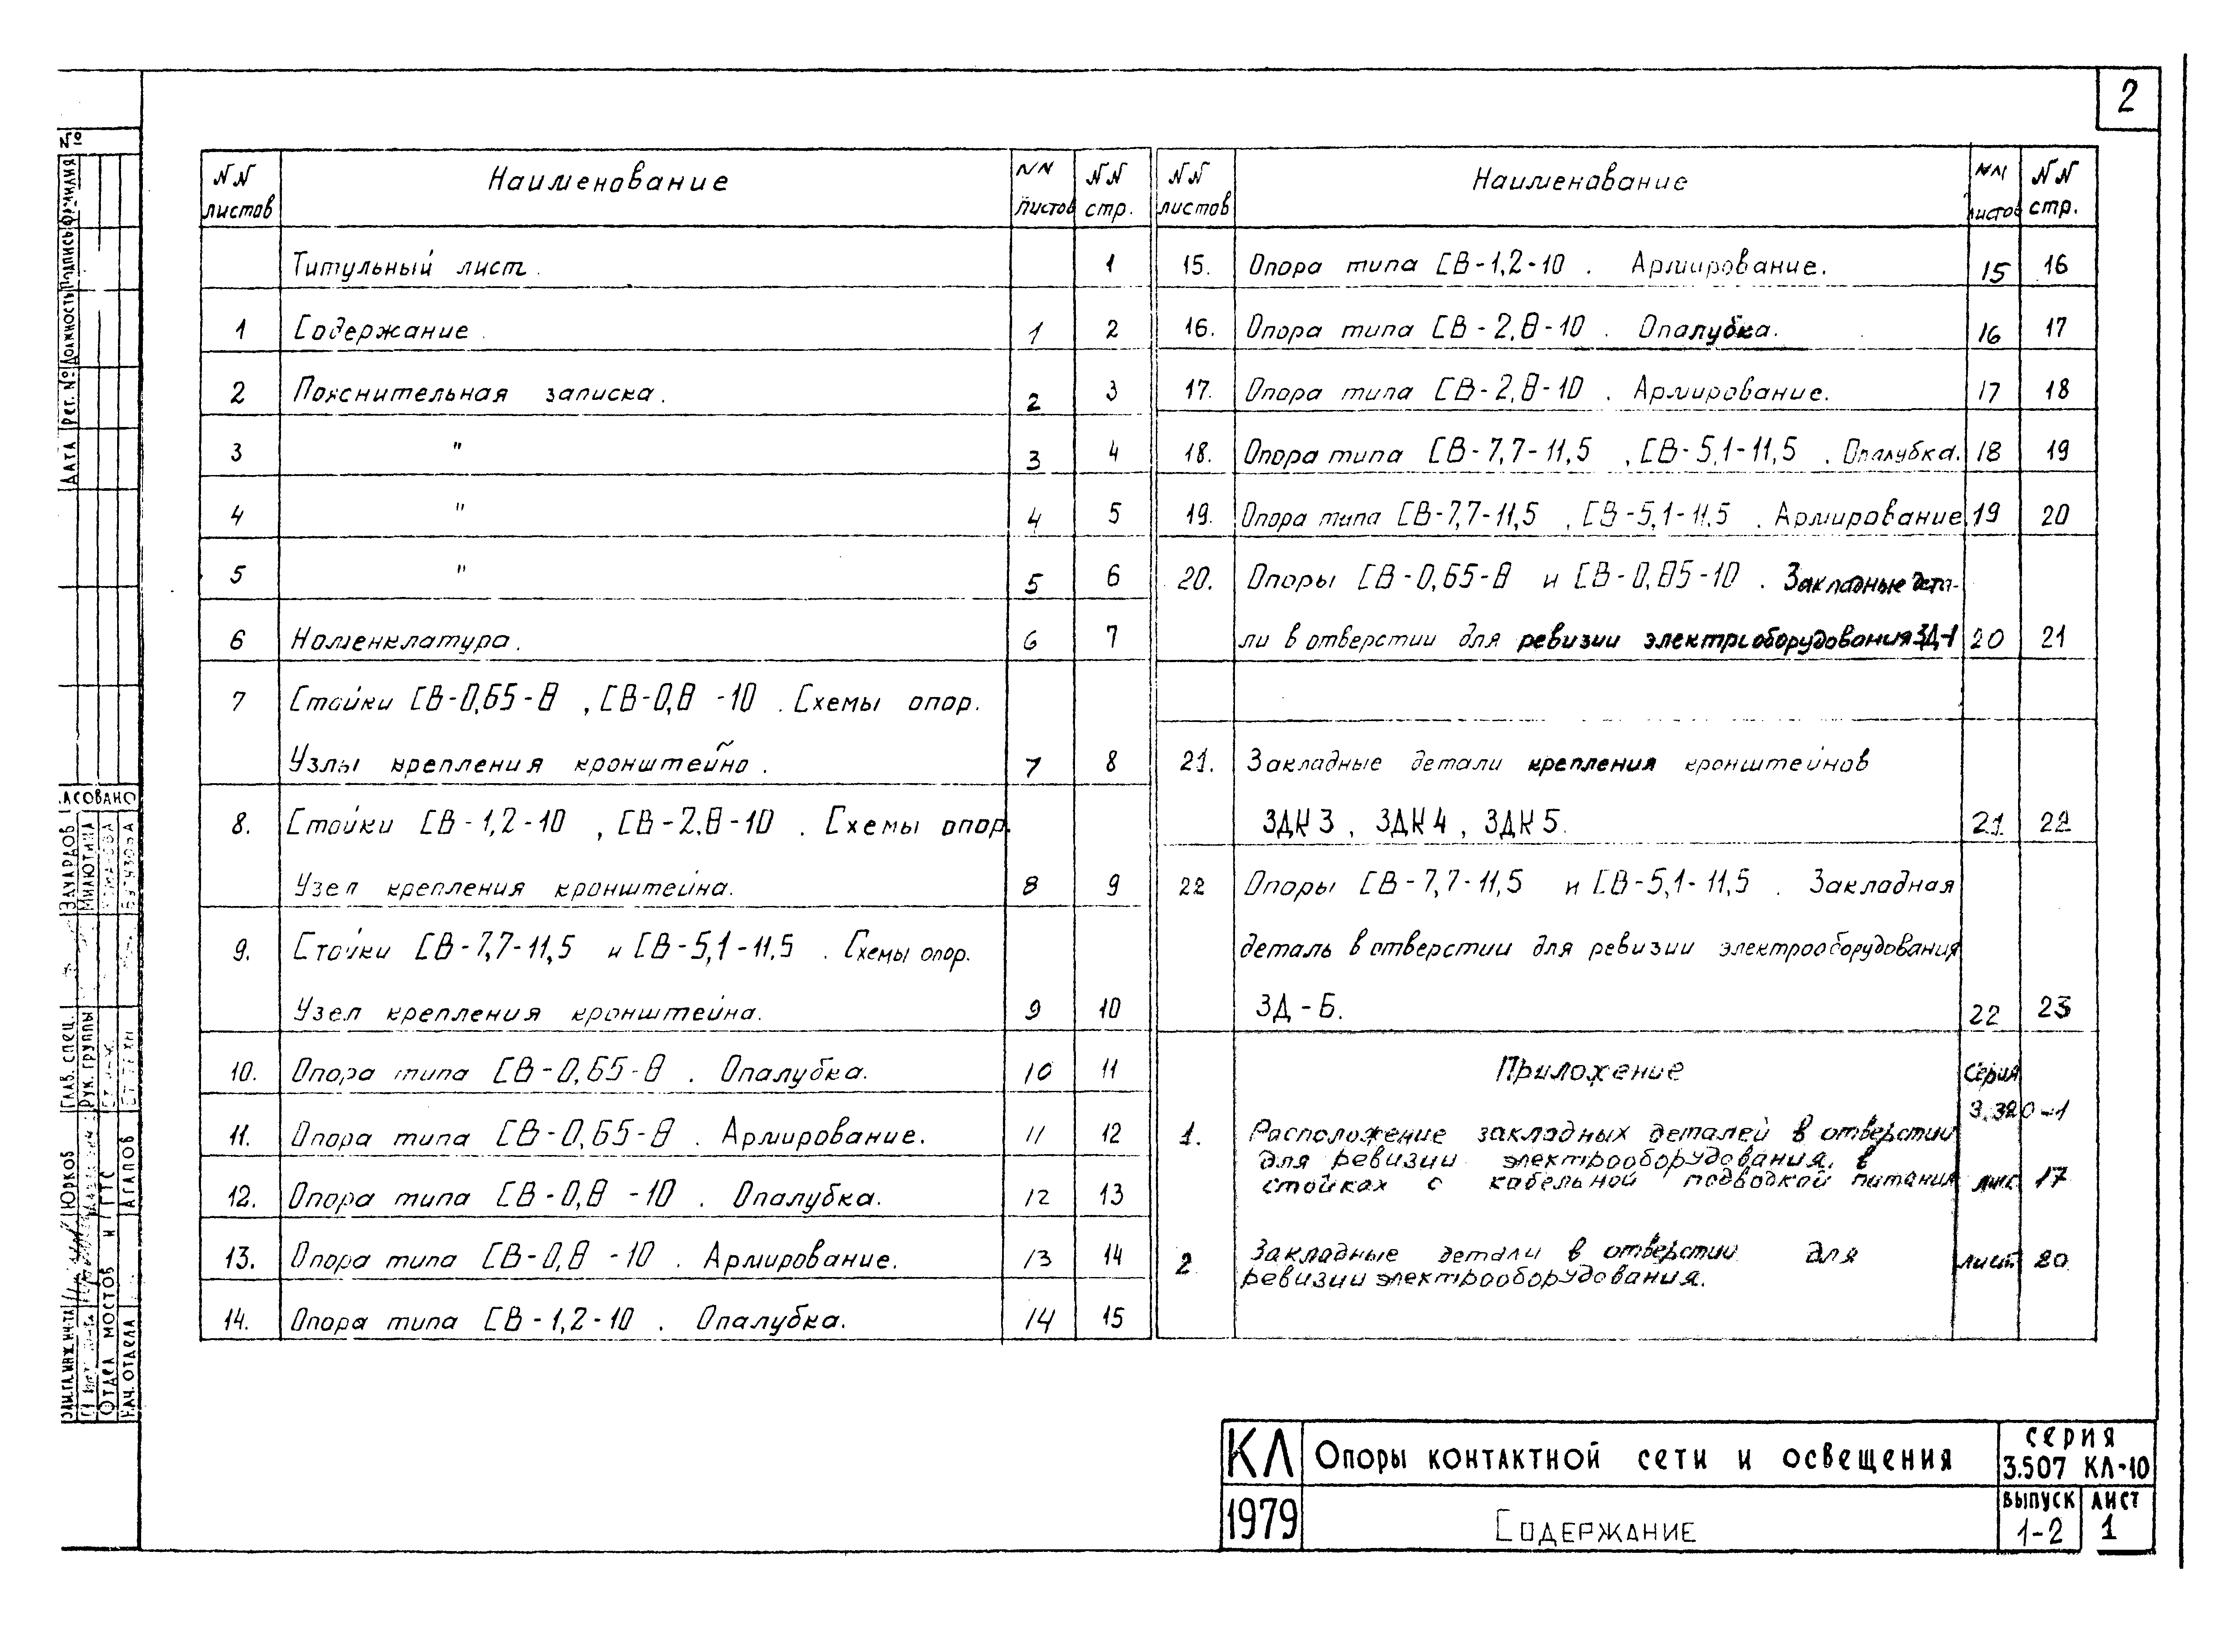 2
NN листов Наименование NN листов NN стр.
Титульный лист. 1
1 Содержание. 1 2
2 Пояснительная записка. 2 3
3 " 3 4
4 " 4 5
5 " 5 6
6 Номенклатура. 6 7
7 Стойки СВ-0,65-8 , СВ-0,8 -10 . Схемы опор.
Узлы крепления кронштейно . 7 8
8. Стойки СВ-1,2-10 , СВ-2,8-10 . Схемы опор.
Узел крепления кронштейна. 8 9
9. Стойки СВ-7,7-11,5 и СВ-5,1-11,5 . Схемы опор.
Узел крепления кронштейна. 9 10
10. Опора типа СВ-0,65-8 . Опалубка. 10 11
11. Опора типа СВ-0,65-8 . Армирование. 11 12
12. Опора типа СВ-0,8 -10 . Опалубка. 12 13
13. Опора типа СВ-0,8 -10 . Армирование. 13 14
14. Опора типа СВ-1,2-10 . Опалубка. 14 15
NN листов Наименование NN листов NN стр.
15. Опора типа СВ-1,2-10 . Армирование. 15 16
16. Опора типа СВ-2,8-10 . Опалубка. 16 17
17. Опора типа СВ-2,8-10 . Армирование. 17 18
18. Опора типа СВ-7,7-11,5 , СВ-5,1-11,5 . Опалубка. 18 19
19. Опора типа СВ-7,7-11,5 , СВ-5,1-11,5 . Армирование. 19 20
20. Опоры СВ-0,65-8 и СВ-0,85-10 . Закладные дета-
ли в отверстии для ревизии электрооборудования ЗД-1 20 21
21. Закладные детали крепления кронштейнов
ЗДК3 , ЗДК4 , ЗДК5. 21 22
22 Опоры СВ-7,7-11,5 и СВ-5,1-11,5 . Закладная
деталь в отверстии для ревизии электрооборудования
ЗД-Б. 22 23
Приложение Серия
3.320-1
1. Расположение закладных деталей в отверстии
для ревизии электрооборудования, в
стойках с кабельной подводкой питания лис 17
2 Закладные детали в отверстии для лист 20
ревизии электрооборудования.
КЛ Опоры контактной сети и освещения серия
3.507 КЛ-10
1979 Содержание выпуск лист
1-2 1
№
Дата Рег. № Должность Подпись Фамилия
Эдуардов
Милютина
Глав. спец.
Рук. группы
Юрков
Отдел мостов и ГТС
Нач. отдела Агапов